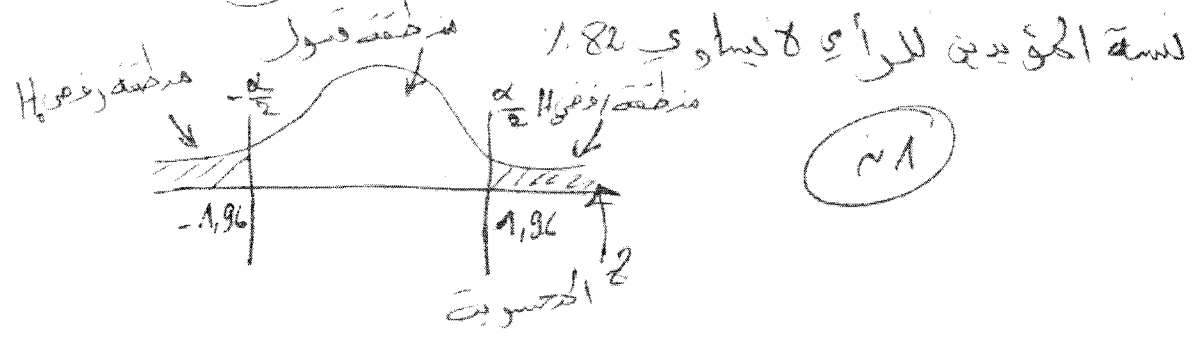 نسبة المؤيدين للرأي لا تساوي 82 ٪
منطقة قبول
منطقة رفض H₀
منطقة رفض H₀
-α/2
α/2
ن 1
-1,96
1,96
Z
المحسوبة